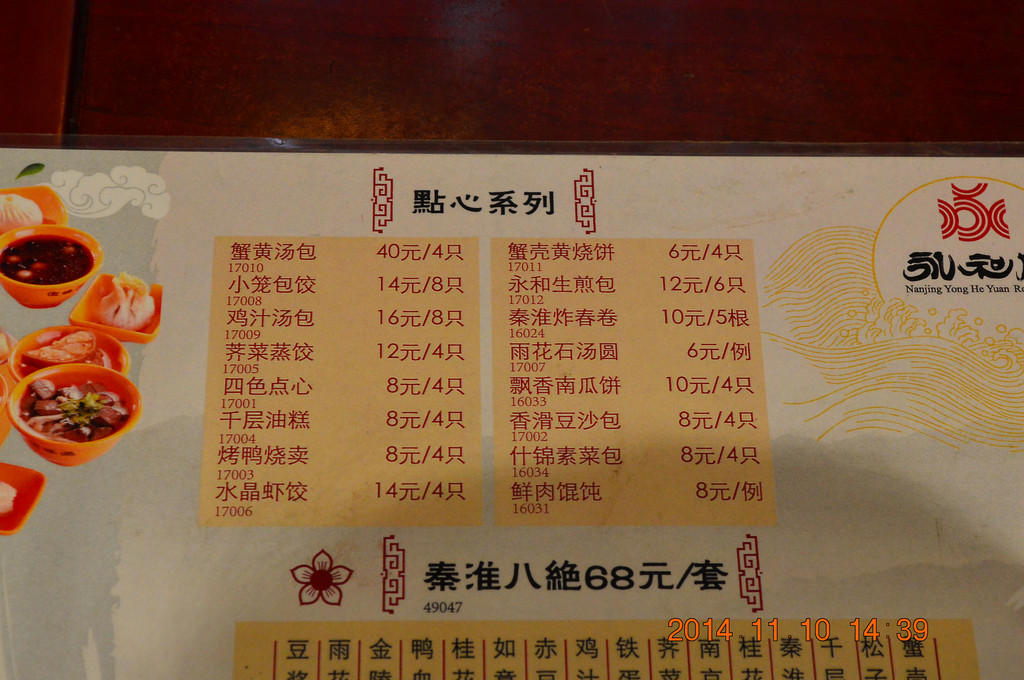 點心系列
蟹黄汤包 40元/4只
17010
小笼包饺 14元/8只
17008
鸡汁汤包 16元/8只
17009
荠菜蒸饺 12元/4只
17005
四色点心 8元/4只
17001
千层油糕 8元/4只
17004
烤鸭烧卖 8元/4只
17003
水晶虾饺 14元/4只
17006
蟹壳黄烧饼 6元/4只
17011
永和生煎包 12元/6只
17012
秦淮炸春卷 10元/5根
16024
雨花石汤圆 6元/例
17007
飘香南瓜饼 10元/4只
16033
香滑豆沙包 8元/4只
17002
什锦素菜包 8元/4只
16034
鲜肉馄饨 8元/例
16031
永和
Nanjing Yong He Yuan
秦淮八絶68元/套
49047
豆 雨 金 鸭 桂 如 赤 鸡 铁 荠 南 桂 秦 千 松 蟹
2014.11.10 14:39